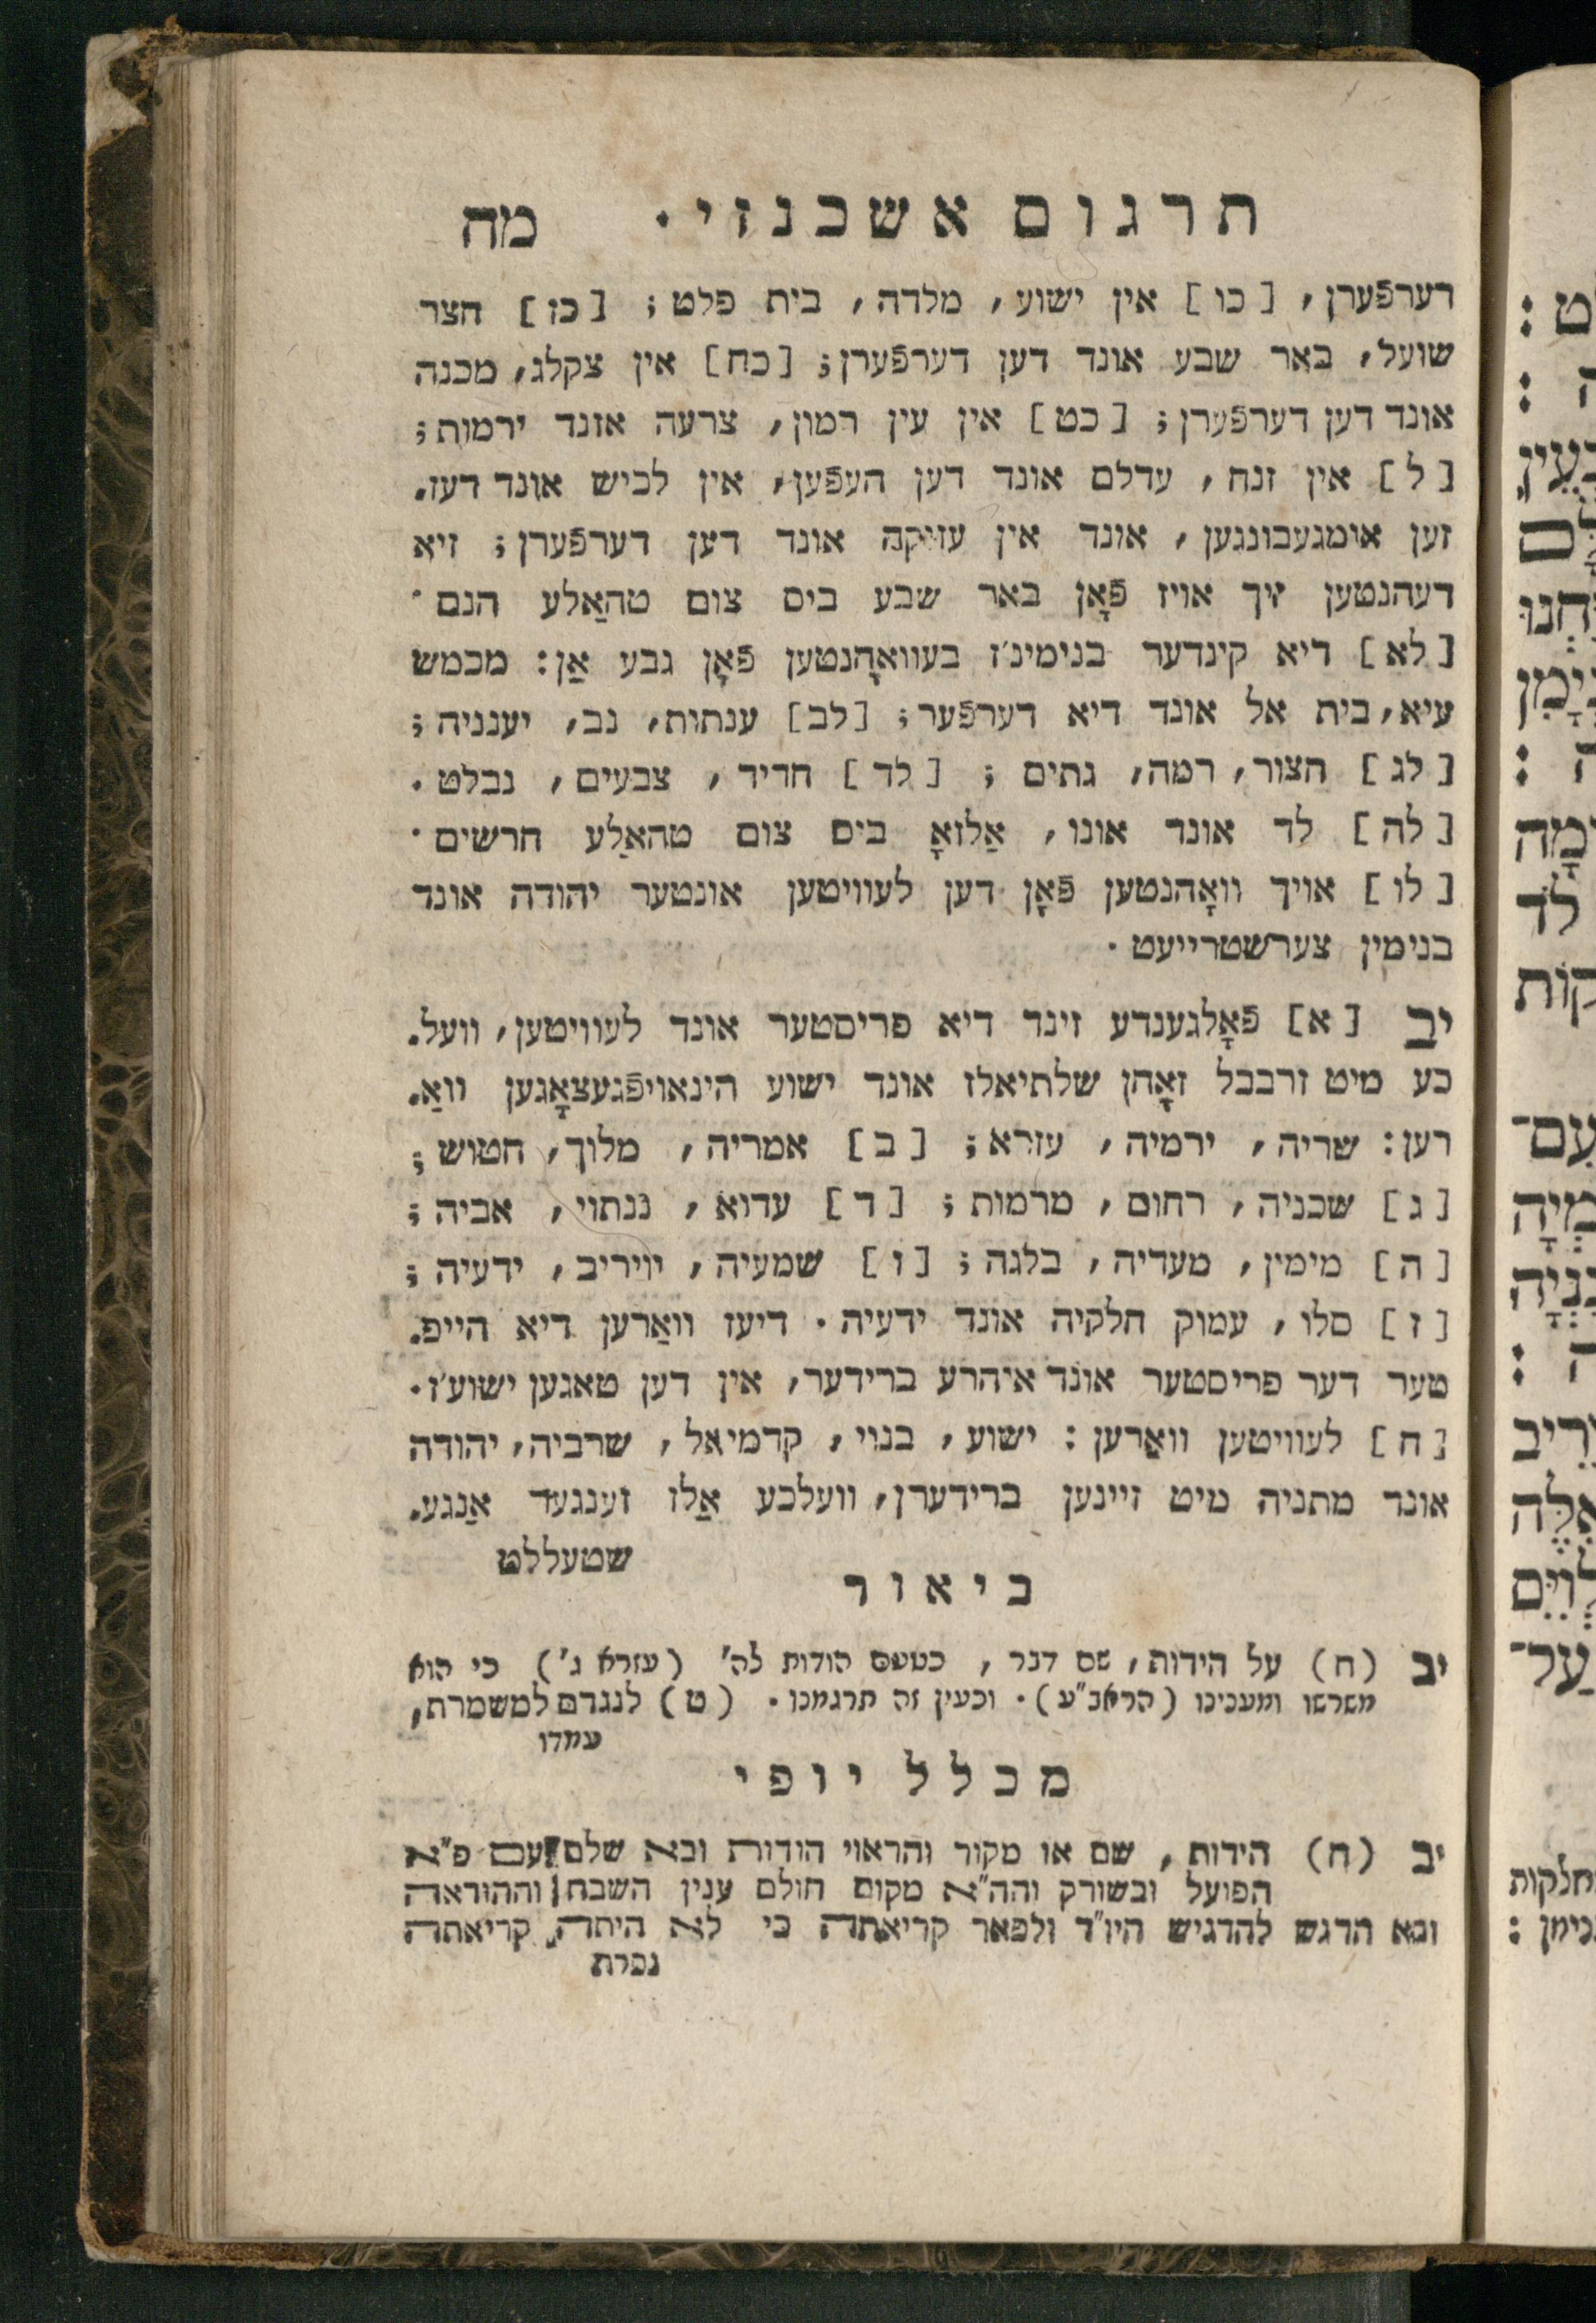 תרגום אשכנזי · מח
דערפֿערן, [כו] אין ישוע, מלדה, בית פלט; [כז] חצר
שועל, באר שבע אונד דען דערפֿערן; [כח] אין צקלג, מכנה
אונד דען דערפֿערן; [כט] אין עין רמון, צרעה אונד ירמות;
[ל] אין זנח, עדלם אונד דען העפֿען, אין לכיש אונד דעז.
זען אומגעבונגען, אונד אין עזיקה אונד דען דערפֿערן; זיא
דעהנטען זיך אויז פֿאָן באר שבע ביס צום טהאַלע הנם ·
[לא] דיא קינדער בנימינ׳ז בעוואָהנטען פֿאָן גבע אַן: מכמש
עיא, בית אל אונד דיא דערפֿער; [לב] ענתות, נב, יענניה;
[לג] חצור, רמה, גתים; [לד] חדיד, צבעים, נבלט ·
[לה] לד אונד אונו, אַלזאָ ביס צום טהאַלע חרשים ·
[לו] אויך וואָהנטען פֿאָן דען לעוויטען אונטער יהודה אונד
בנימין צערשטרייעט ·
יב [א] פֿאָלגענדע זינד דיא פריסטער אונד לעוויטען, וועל.
כע מיט זרבבל זאָהן שלתיאלז אונד ישוע הינאויפֿגעצאָגען וואַ.
רען: שריה, ירמיה, עזרא; [ב] אמריה, מלוך, חטוש;
[ג] שכניה, רחום, מרמות; [ד] עדוא, גנתוי, אביה;
[ה] מימין, מעדיה, בלגה; [ו] שמעיה, יויריב, ידעיה;
[ז] סלו, עמוק חלקיה אונד ידעיה · דיעז וואַרען דיא הייפ.
טער דער פריסטער אונד איהרע ברידער, אין דען טאגען ישוע׳ז ·
[ח] לעוויטען וואַרען: ישוע, בנוי, קדמיאל, שרביה, יהודה
אונד מתניה מיט זיינען ברידערן, וועלכע אַלז זענגער אַנגע.
שטעללט
ביאור
יב (ח) על הידות, שם דבר, כטעם הודות לה' (עזרא ג') כי הוא
משרשו ומענינו (הראב"ע) · וכעין זה תרגמנו · (ט) לנגדם למשמרת,
עמדו
מכלל יופי
יב (ח) הידות, שם או מקור והראוי הודות ובא שלם עם פ"א
הפועל ובשורק והה"א מקום חולם ענין השבח וההודאה
ובא הדגש להדגיש היו"ד ולפאר קריאתה כי לא היתה קריאתה
נכרת